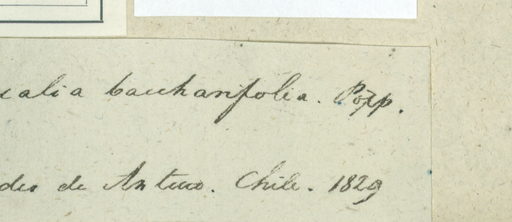 calia bacchanifolia. Popp.
des de Antuco. Chile. 1829